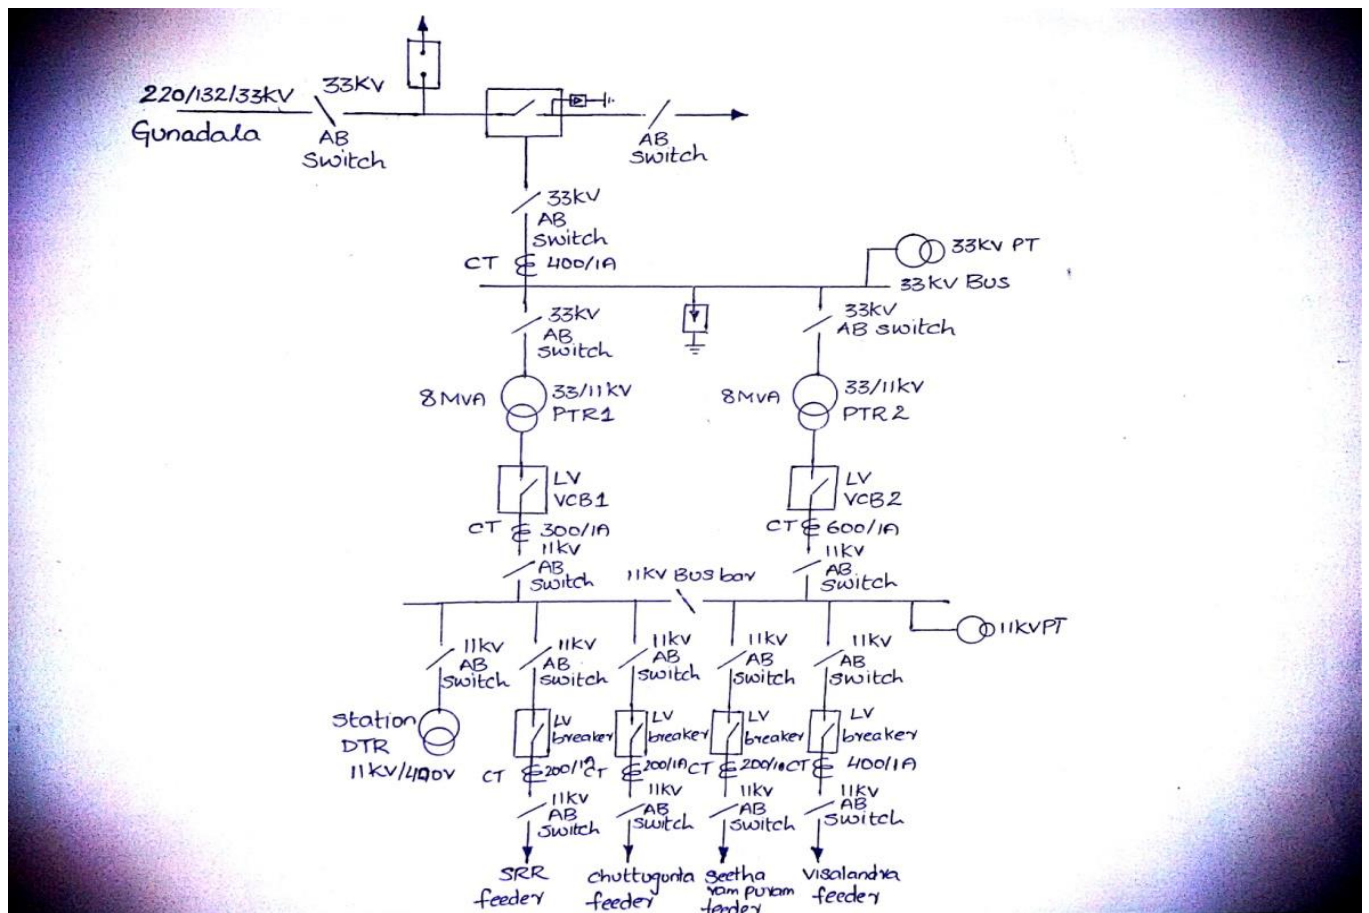 220/132/33KV
Gunadala
33KV
AB
Switch
AB
switch
33KV
AB
switch
CT 400/1A
33KV PT
33KV BUS
33KV
AB
switch
33KV
AB switch
8 MVA
33/11KV
PTR1
8 MVA
33/11KV
PTR 2
LV
VCB1
LV
VCB2
CT 300/1A
CT 600/1A
11KV
AB
switch
11KV Bus bar
11KV
AB
switch
11KV PT
11KV
AB
switch
11KV
AB
switch
11KV
AB
switch
11KV
AB
switch
11KV
AB
switch
Station
DTR
11KV/400V
LV
breaker
LV
breaker
LV
breaker
LV
breaker
CT 200/1A
CT 200/1A
CT 200/1A
CT 400/1A
11KV
AB
switch
11KV
AB
switch
11KV
AB
switch
11KV
AB
switch
SRR
feeder
chuttugunta
feeder
Seetha
ram puram
feeder
Visalandra
feeder